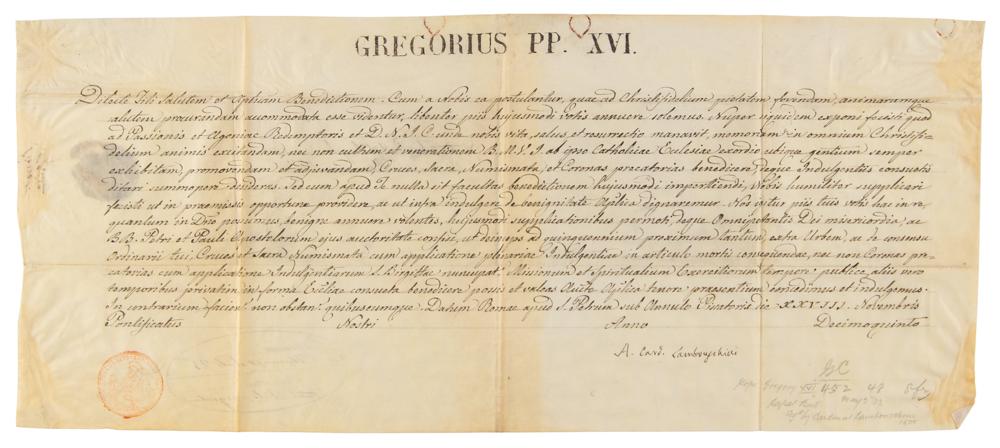 GREGORIUS PP. XVI.
Dilecte Fili Salutem et Aplicam Benedictionem. Cum a Nobis ea postulantur, quae ad Christifidelium pietatem fovendam, animarumque
salutem procurandam accommodata esse videntur, libenter piis hujusmodi votis annuere solemus. Nuper siquidem exponi fecisti quod
ad Passionis et Agoniae Redemptoris et D. N. J. C. unde nobis vita, salus, et resurrectio manavit, memoriam in omnium Christifi-
delium animis excitandam, nec non cultum et venerationem B. M. V. I. ab ipso Catholicae Ecclesiae exordio utique gentium semper
exhibitam, promovendam et adjuvandam, Cruces, Sacra Numismata, et Coronas precatorias benedicere, deque Indulgentiis consuetis
ditari summopere desideras. Sed cum apud te nulla sit facultas benedictionem hujusmodi impertiendi, Nobis humiliter supplicari
fecisti ut in praemissis opportune providere, ac ut infra indulgere de benignitate Aplica dignaremur. Nos igitur piis tuis votis hac in re,
quantum in Dno possumus, benigne annuere volentes, hujusmodi supplicationibus permoti, deque Omnipotentis Dei misericordia, ac
B.B. Petri et Pauli Apostolorum ejus auctoritate confisi, ut deinceps ad quinquennium proximum tantum, extra Urbem, ac de consensu
Ordinarii tui, Cruces et Sacra Numismata cum applicatione plenariae Indulgentiae in articulo mortis conveniendae, nec non Coronas pre-
catorias cum applicatione Indulgentiarum S. Birgittae nuncupat. Missionum et Spiritualium Exercitiorum tempore publice, aliis vero
temporibus privatim in forma Eccliae consueta benedicere possis et valeas Aucte Aplica tenore praesentium concedimus et indulgemus.
In contrarium facien. non obstan. quibuscumque. Datum Romae apud S. Petrum sub Annulo Piscatoris die XXVIII Novembris
Pontificatus Nostri Anno Decimoquinto
A. Card. Lambruschini
GC
Pope Gregory XVI 452 48
Papal
May
Sgd by Cardinal Lambruschini